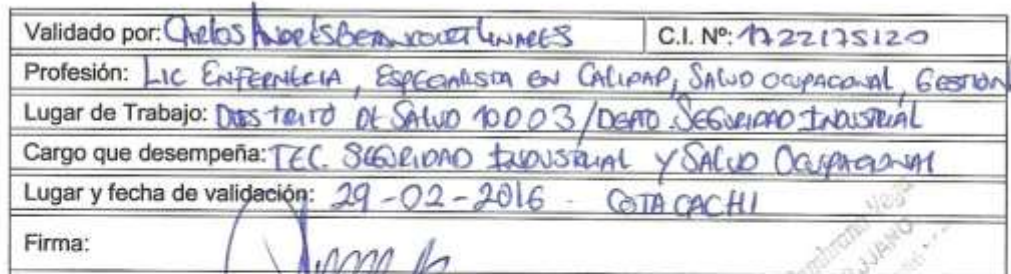 Validado por: CARLOS ANDRÉS BETANCOURT LINARES C.I. Nº: 1722175120
Profesión: LIC ENFERMERIA, ESPECIALISTA EN CALIDAD, SALUD OCUPACIONAL, GESTION
Lugar de Trabajo: DISTRITO DE SALUD 10D03/DEPTO. SEGURIDAD INDUSTRIAL
Cargo que desempeña: TEC. SEGURIDAD INDUSTRIAL Y SALUD OCUPACIONAL
Lugar y fecha de validación: 29-02-2016 - COTACACHI
Firma: